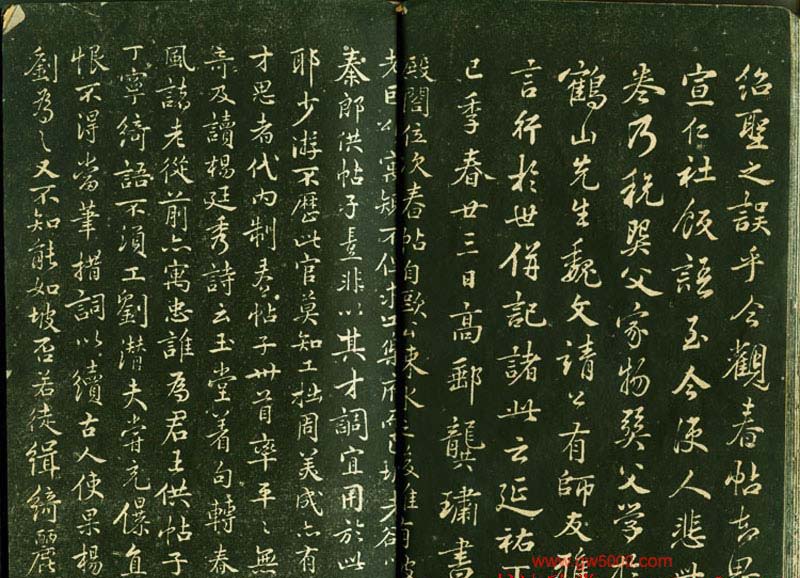 紹聖之誤乎今觀春帖知思
宣仁社飯語至今使人悲
卷乃稅巽父家物巽父學
鶴山先生魏文請公有師友
言行於世併記諸此云延祐丁
巳季春廿三日高郵龔璛書
殿閣位次春帖自歐公
秦郎供帖子豈非以其才調宜用於此
耶少游不歷此官莫知工拙周美成亦有
才思者代內制春帖子卅首率平平無
奇及讀楊廷秀詩云玉堂著句轉春
風諸老從前亦寓忠誰為君王供帖子
丁寧綺語不須工劉潛夫嘗充儤直
恨不得當筆措詞以續古人使果楊
劉為之又不知能如坡否若徒緝綺麗
www.yw5000.com